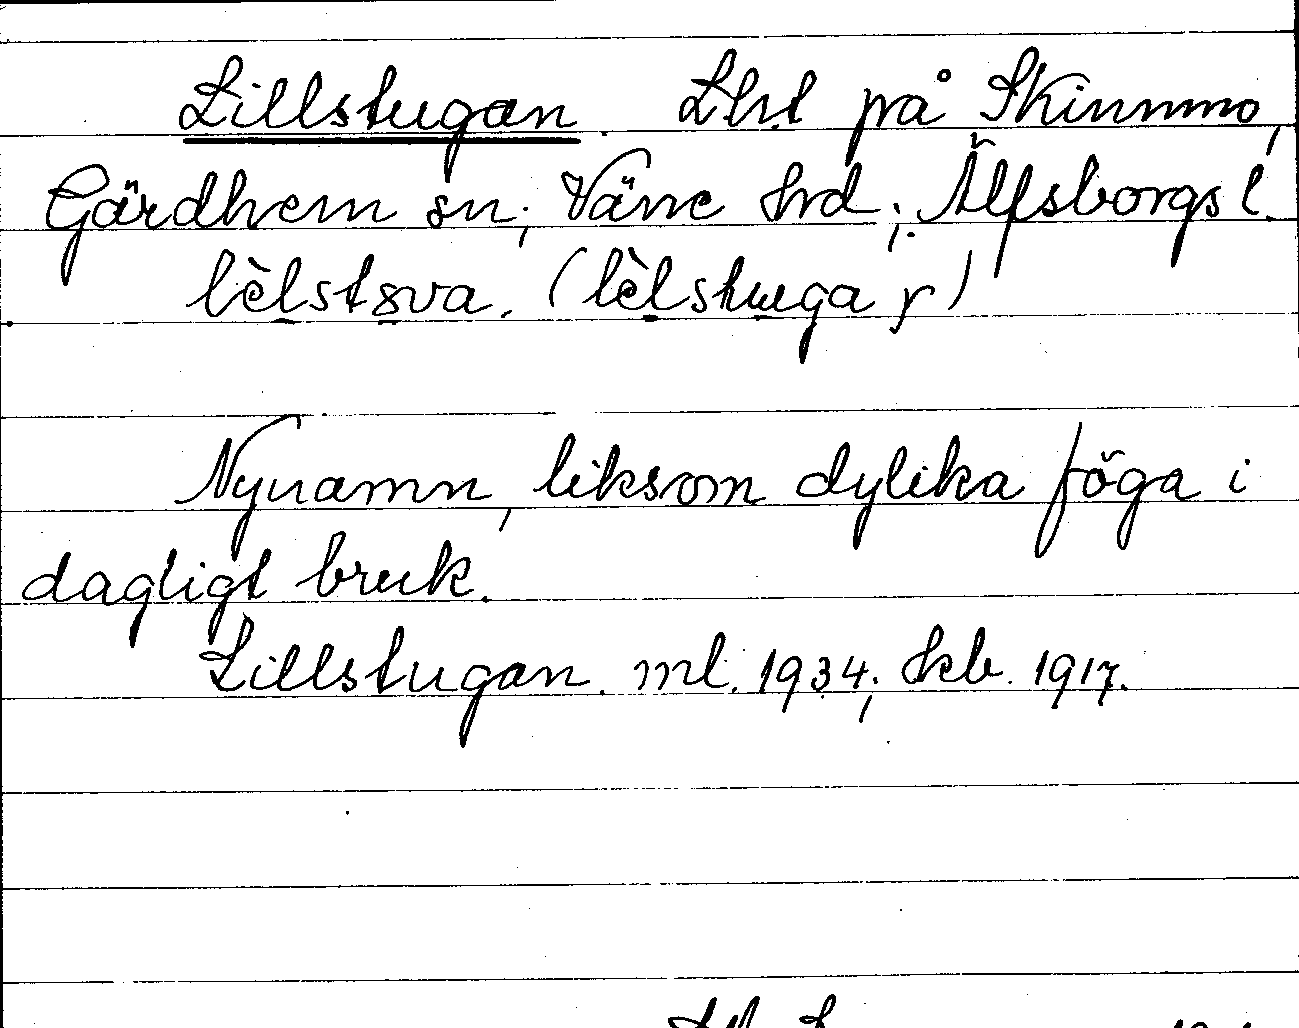 Lillstugan. Lht på Skinnmo,
Gärdhem sn; Väne hrd; Älfsborgs l.
lèlstsva. (lèlstuga y)
Nynamn, liksom dylika föga i
dagligt bruk.
Lillstugan. ml. 1934; skb. 1917.